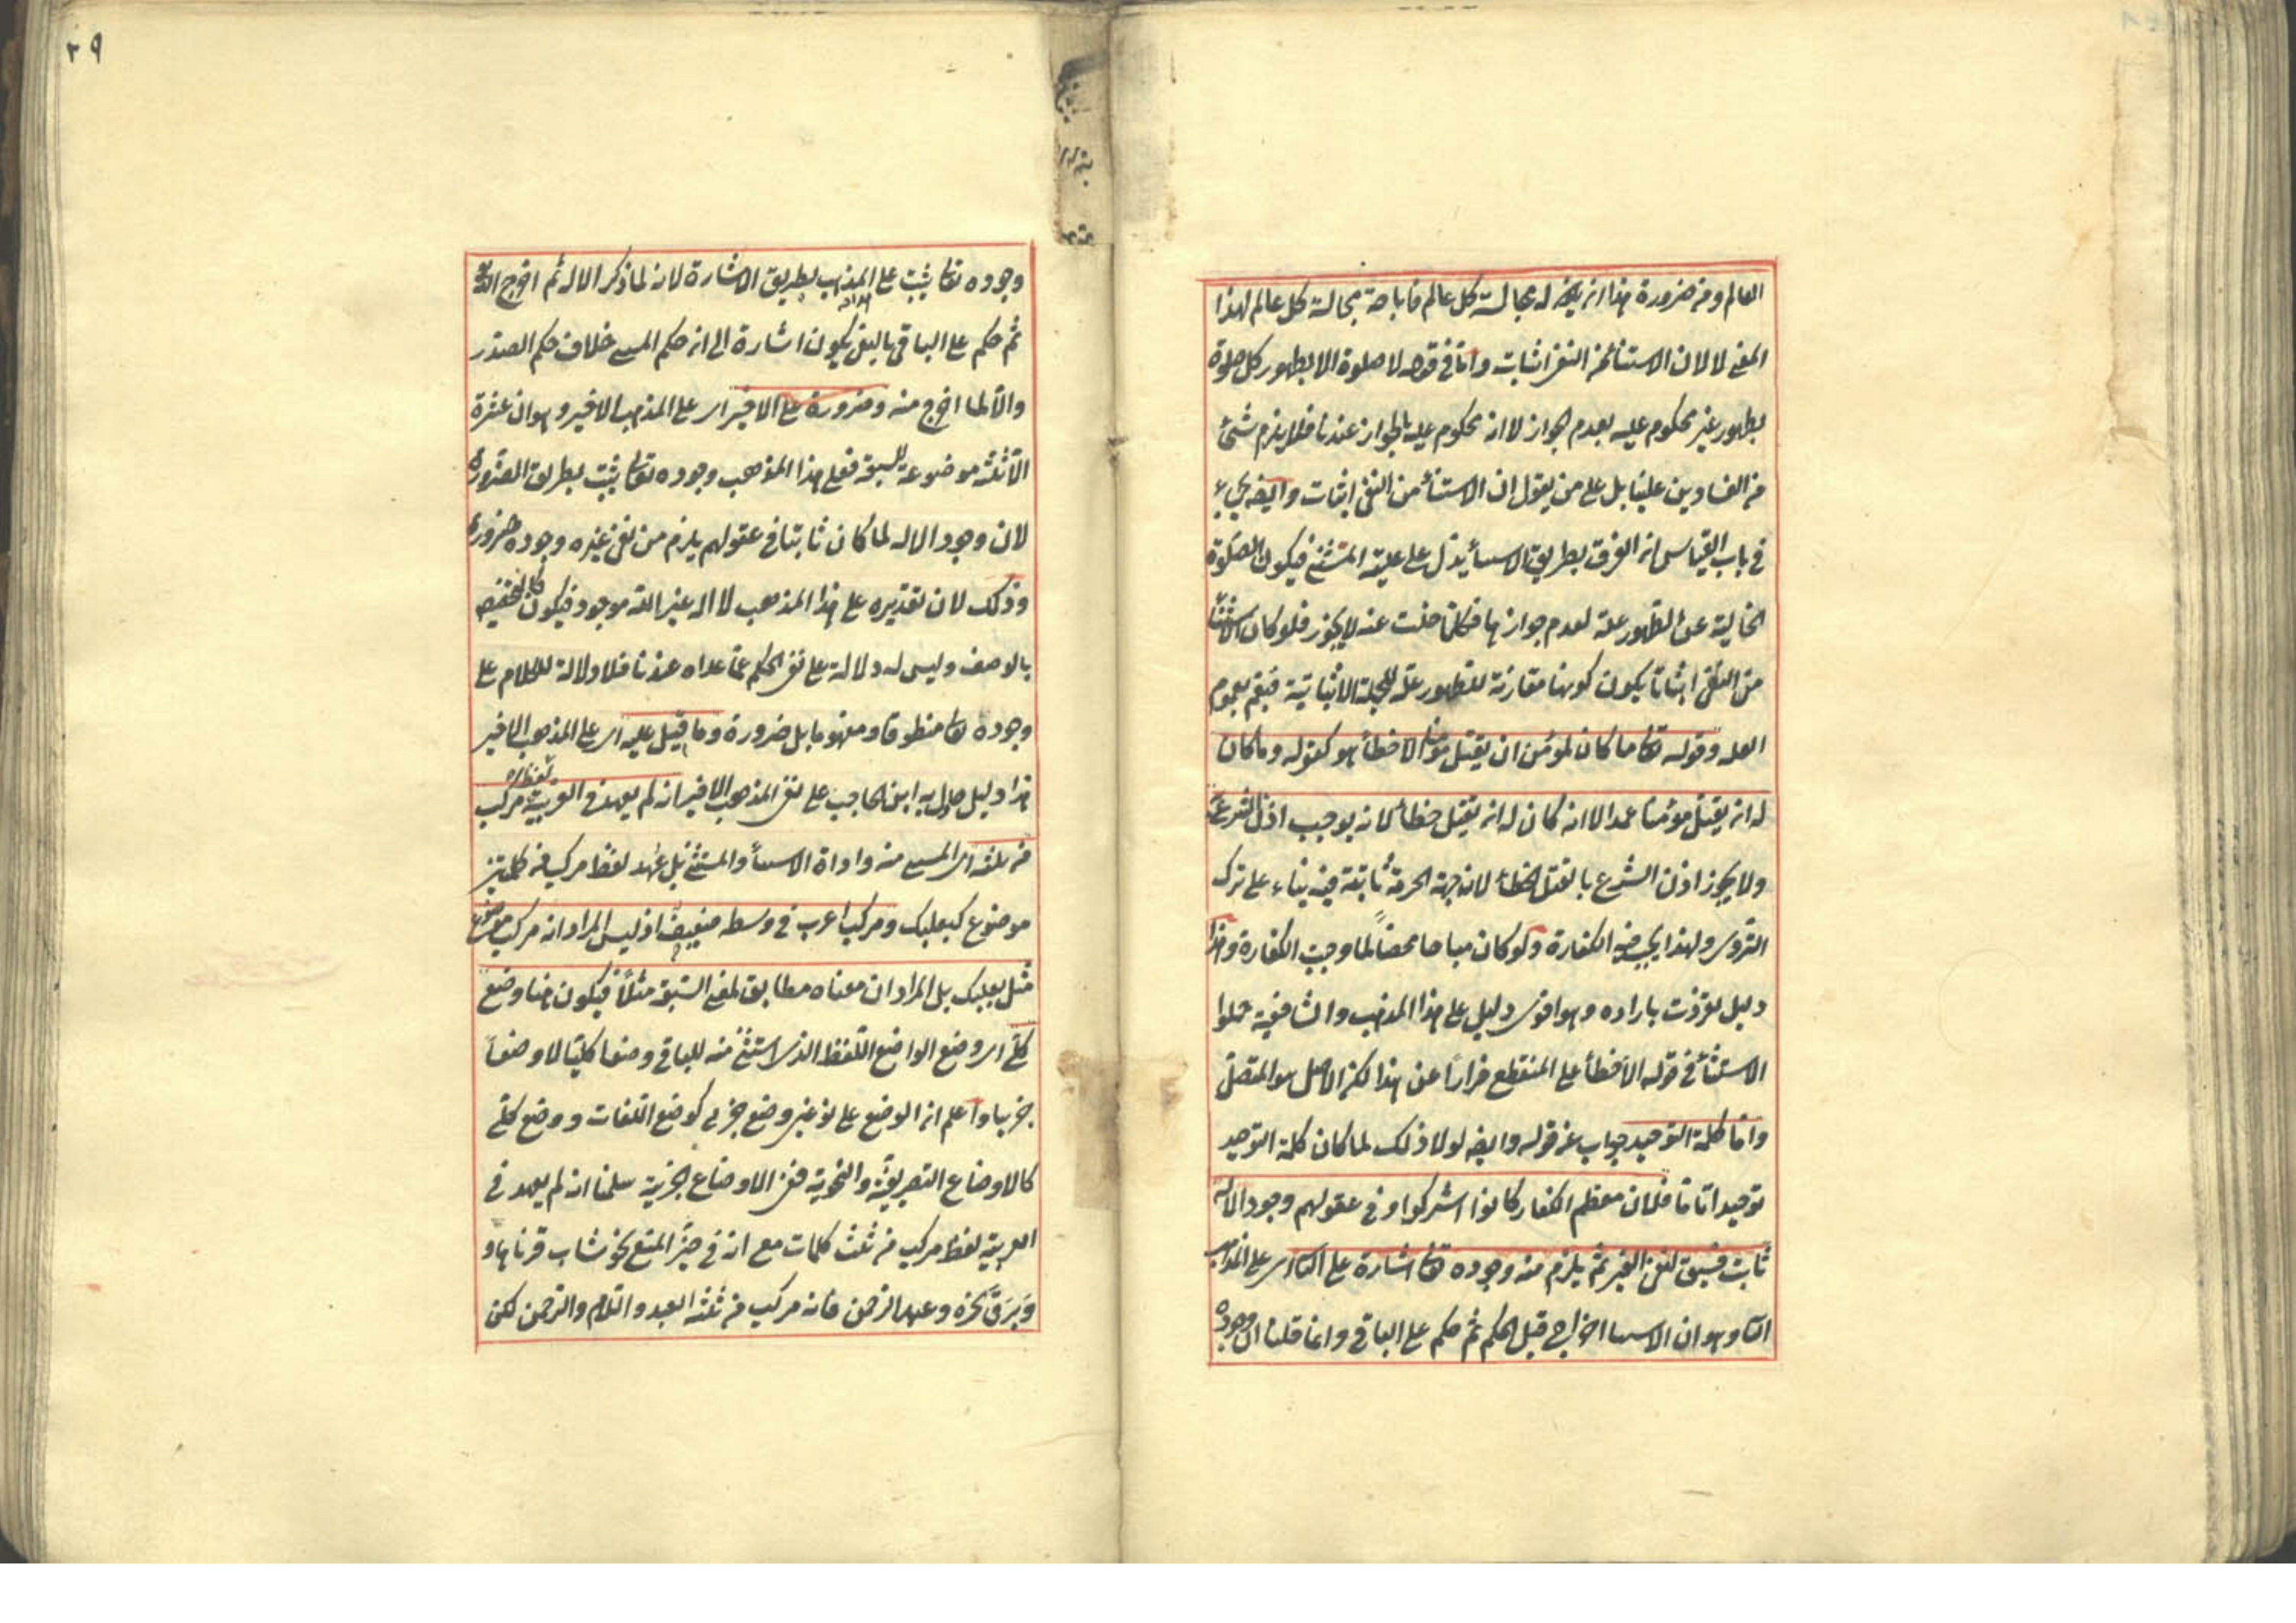 العالم ومن ضرورة هذا انه يكون له مجالسة كل عالم فاباحة مجالسة كل عالم لهذا
المعنى لا لان الاستثناء من النفى اثبات واما فى قوله لا صلوة الا بطهور كل صلوة
بطهور غير محكوم عليه بعدم الجواز لا انه محكوم عليه بالجواز عندنا فلا يلزم شئ
من الفسادين علينا بل على من يقول ان الاستثناء من النفى اثبات وايضا يجىء
فى باب القياس ان الفرق بطريق الاستثناء يدل على علية المستثنى فيكون الصلوة
الخالية عن الطهور علة لعدم جوازها فكلما خلت عنه لا يجوز فلو كان الاستثناء
من النفى اثباتا يكون كونها مقارنة للطهور علة للجملة الاثباتية فيعم بعموم
العلة وقوله تعا ما كان لمؤمن ان يقتل مؤمنا الا خطأ هو كقوله وما كان
له ان يقتل مؤمنا عمدا الا انه كان له ان يقتل خطأ لانه يوجب اذن الشرع
ولا يجوز اذن الشرع بالقتل الخطأ لان جهة الحرمة ثابتة فيه بناء على ترك
التروى ولهذا يجب فيه الكفارة ولو كان مباحا محضا لما وجب الكفارة وهذا
دليل تفردت بايراده وهو اقوى دليل على هذا المذهب والشافعية حملوا
الاستثناء فى قوله الا خطأ على المنقطع فرارا عن هذا لكن الاصل هو المتصل
واما كلمة التوحيد جواب عن قوله وايضا لولا ذلك لما كان كلمة التوحيد
توحيدا تاما فلان معظم الكفار كانوا اشركوا وفى عقولهم وجود الاله
ثابت فسيق لنفى الغير ثم يلزم منه وجوده تعا اشارة على الثا اى على المذهب
الثا وهو ان الاستثناء اخراج قبل الحكم ثم حكم على الباقى وانما قلنا ان وجوده
٣٩
وجوده تعا يثبت على هذا المذهب بطريق الاشارة لانه لما ذكر الاله ثم اخرج الله
ثم حكم على الباقى بالنفى يكون اشارة الى ان حكم المستثنى خلاف حكم الصدر
والا لما اخرج منه وضرورة على الاخير اى على المذهب الاخير وهو ان عشرة
الا ثلثة موضوعة للسبعة فعلى هذا المذهب وجوده تعا يثبت بطريق الضرورة
لان وجود الاله لما كان ثابتا فى عقولهم يلزم من نفى غيره وجوده ضرورة
وذلك لان تقديره على هذا المذهب لا اله غير الله موجود فيكون كالتخصيص
بالوصف وليس له دلالة على نفى الحكم عما عداه عندنا فلا دلالة للكلام على
وجوده تعا منطوقا ومفهوما بل ضرورة وما قيل عليه اى على المذهب الاخير
هذا دليل حاول به ابن الحاجب على نفى المذهب الاخير انه لم يعهد فى العربية لفظ مركب
من ثلثة اى المستثنى منه واداة الاستثناء والمستثنى بل عهد لفظ مركب من كلمتين
موضوع كبعلبك ومركب اعرب فى وسطه ضعيف اذ ليس المراد انه مركب موضوع
مثل بعلبك بل المراد ان معناه مطابق لمعنى السبعة مثلا فيكون هنا وضع
كلى اى وضع الواضع اللفظ الذى استثنى منه للباقى وضعا كليا لا وضعا
جزئيا واعلم ان الوضع على نوعين وضع جزئى كوضع اللغات ووضع كلى
كالاوضاع التصريفية والنحوية فنفى الاوضاع الجزئية سلمنا انه لم يعهد فى
العربية لفظ مركب من ثلث كلمات مع انه فى حيز المنع نحو شاب قرناها و
وبرق نحره وعبد الرحمن فانه مركب من ثلثة العبد واللام والرحمن لكن